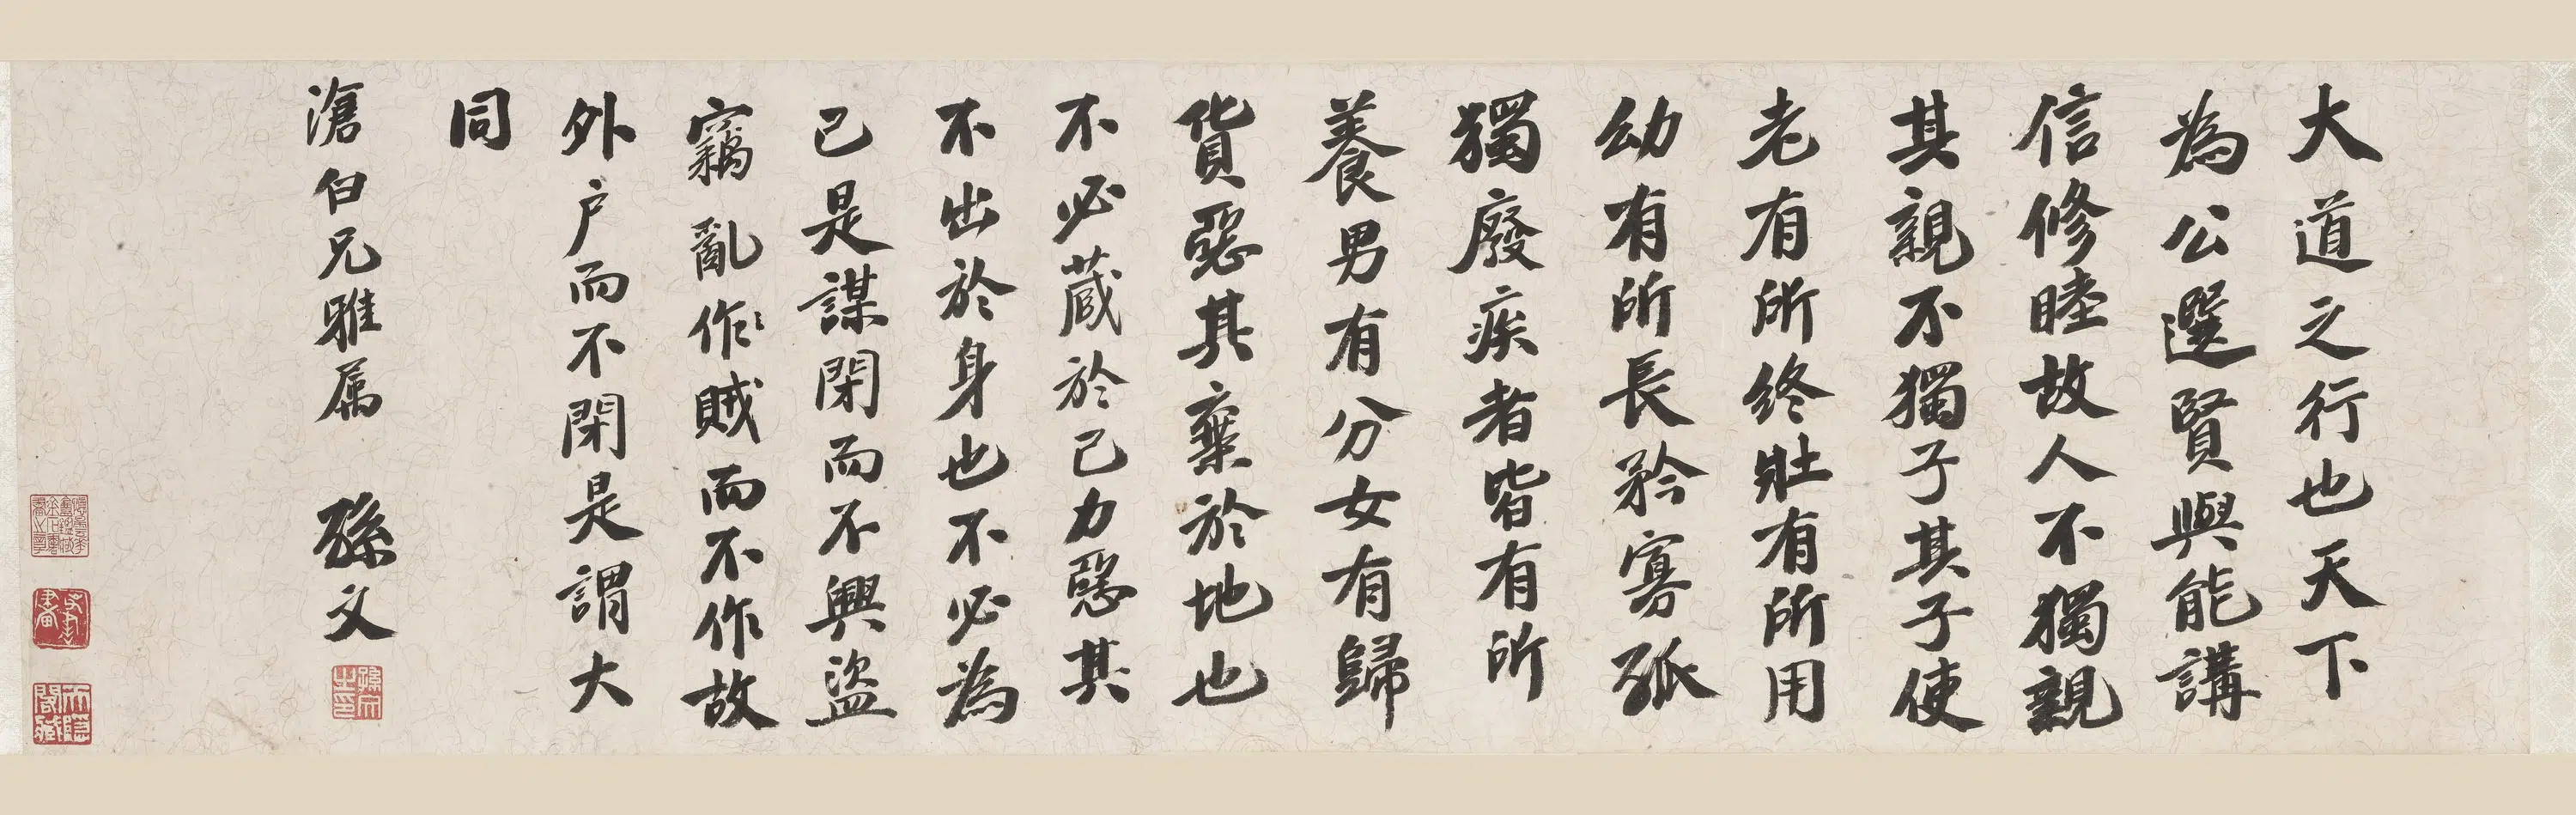 大道之行也天下
為公選賢與能講
信修睦故人不獨親
其親不獨子其子使
老有所終壯有所用
幼有所長矜寡孤
獨廢疾者皆有所
養男有分女有歸
貨惡其棄於地也
不必藏於己力惡其
不出於身也不必為
己是謀閉而不興盜
竊亂作賊而不作故
外户而不閉是謂大
同
滄白兄雅属 孫文
孫文之印
大隱閣藏